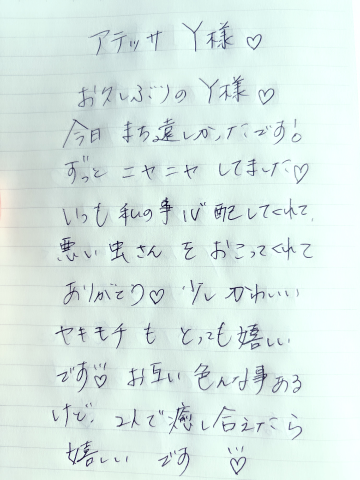 アテッサ Y様♡
お久しぶりの Y様♡
今日 まち遠しかったです!
ずっと ニヤニヤ してました♡
いつも 私の事 心配してくれて、
悪い虫さん を おこってくれて
ありがとう♡ 少し かわいい
ヤキモチ も とっても 嬉しい
です♡ お互い 色んな事ある
けど、2人で癒し合えたら
嬉しい です ♡